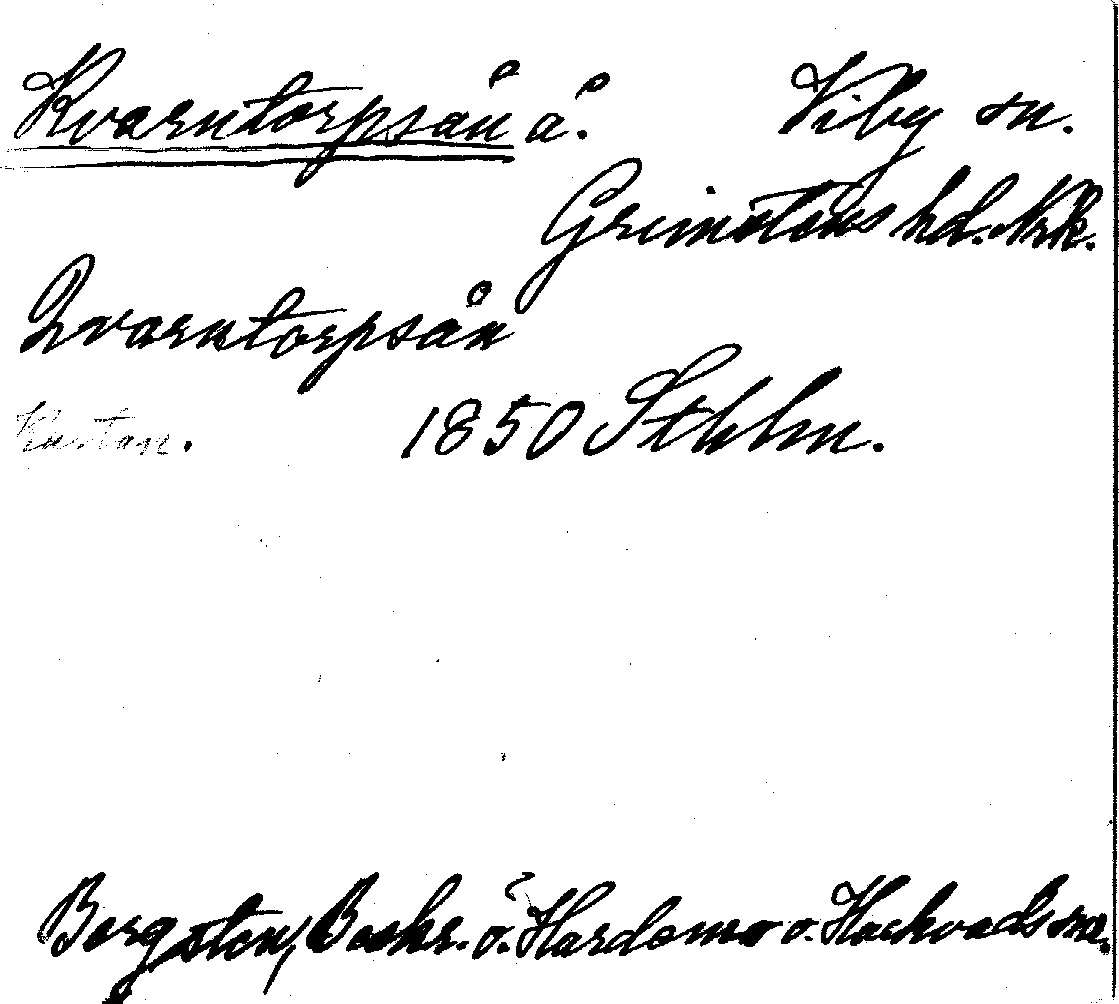 Kvarntorpsån å. Viby sn.
Grimstens hd. Nrk.
Qvarntorpsån
Kartan. 1850 Sthlm.
Bergsten, Beskr. ö. Hardemo o. Hackvads snr.